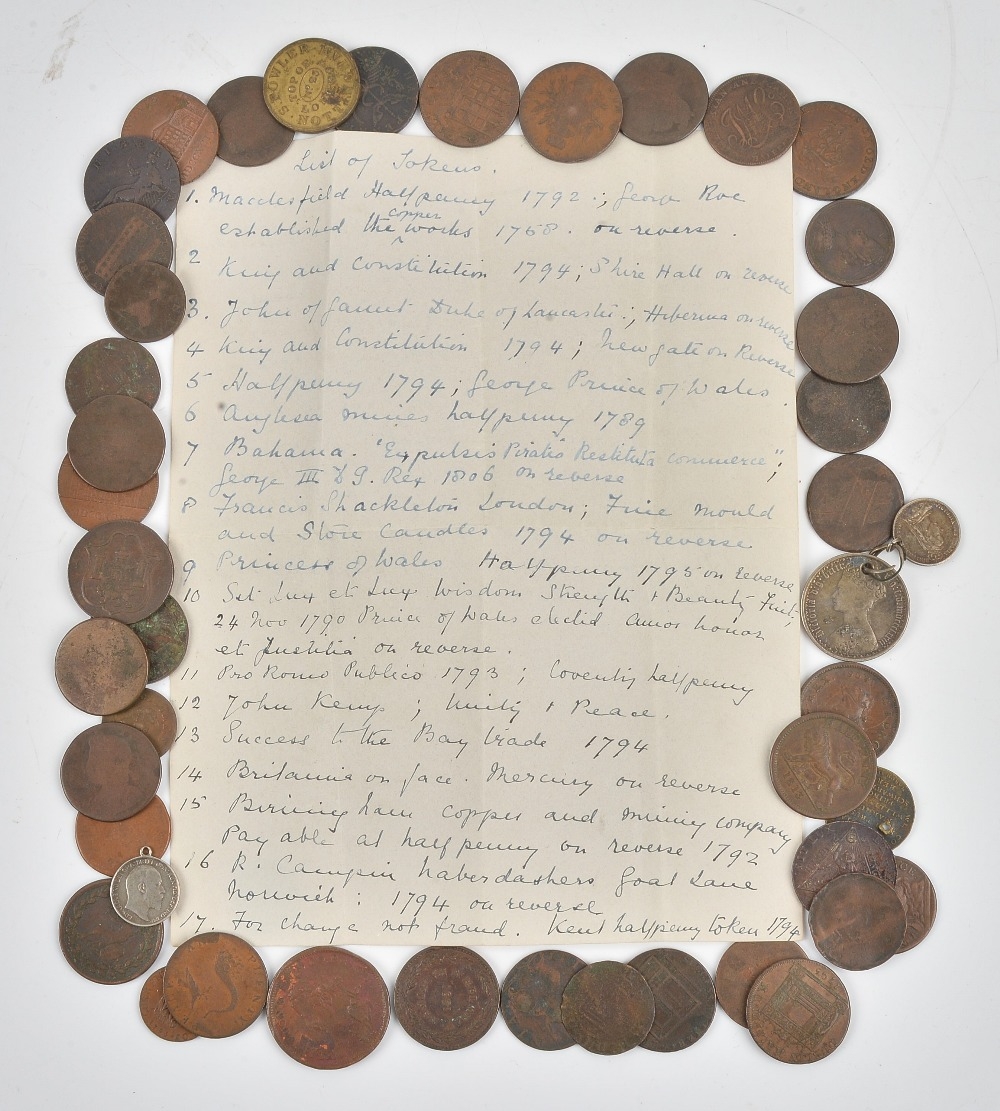 List of Tokens.
1. Macclesfield Halfpenny 1792.; George Roe
established the copper works 1758. on reverse.
2 King and Constitution 1794; Shire Hall on reverse
3. John of Gaunt Duke of Lancaster.; Hibernia on reverse
4 King and Constitution 1794; Newgate on Reverse
5 Halfpenny 1794; George Prince of Wales
6 Anglesea mines halfpenny 1789
7 Bahama. "Expulsis Piratis Restituta commerce";
George III D.G. Rex 1806 on reverse
8 Francis Shackleton London; Fine mould
and Store Candles 1794 on reverse
9 Princess of Wales Halfpenny 1795 on reverse
10 Set Lux et Lux Wisdom Strength + Beauty
24 Nov 1790 Prince of Wales elected. Amor honor
et Justitia on reverse.
11 Pro Romo Publico 1793; Coventry halfpenny
12 John Kemp; Unity + Peace.
13 Success to the Bay trade 1794
14 Britannia on face. Mercury on reverse
15 Birmingham copper and mining company
Payable at halfpenny on reverse 1792
16 R. Campin haberdashers Goat Lane
Norwich: 1794 on reverse
17. For change not fraud. Kent halfpenny token 1794
S. FOWLER
TOP OF